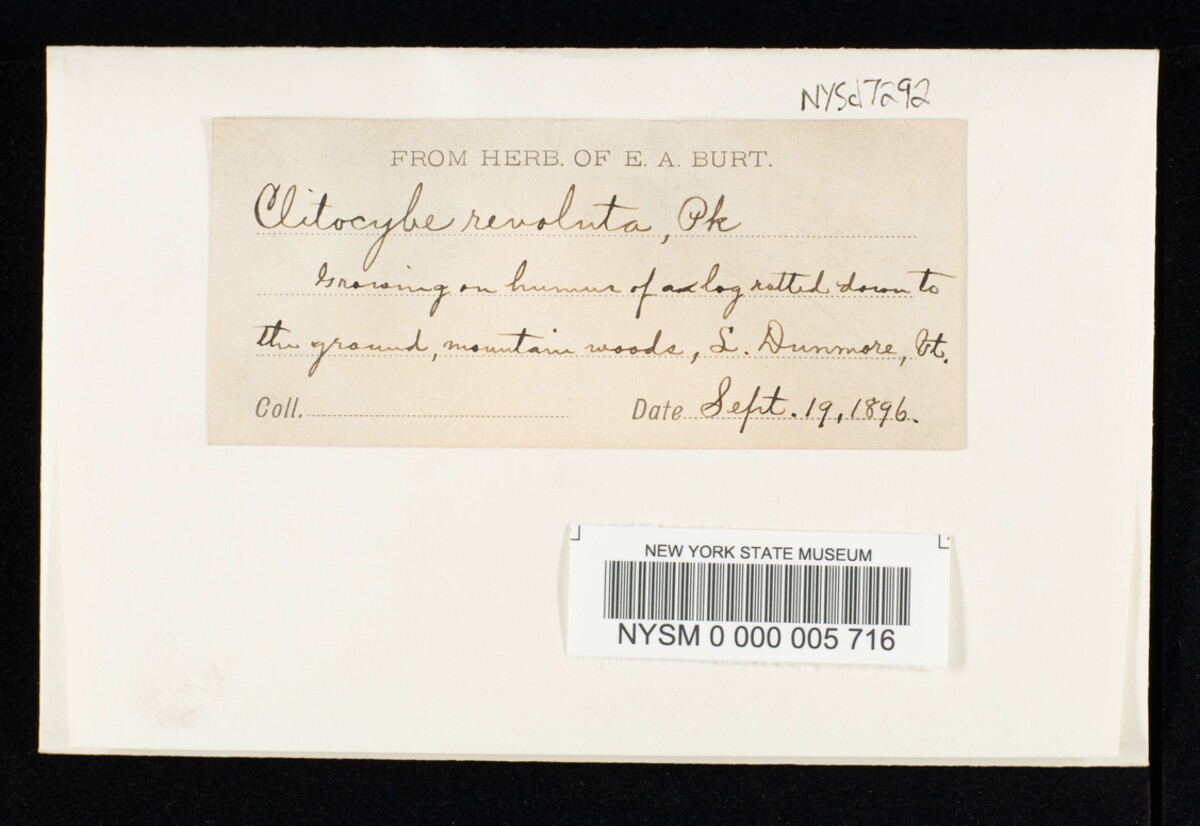 NYSd7292
FROM HERB. OF E. A. BURT.
Clitocybe revoluta, Pk
Growing on humus of a log rotted down to
the ground, mountain woods, L. Dunmore, Vt.
Coll. Date Sept. 19, 1896.
NEW YORK STATE MUSEUM
NYSM 0 000 005 716